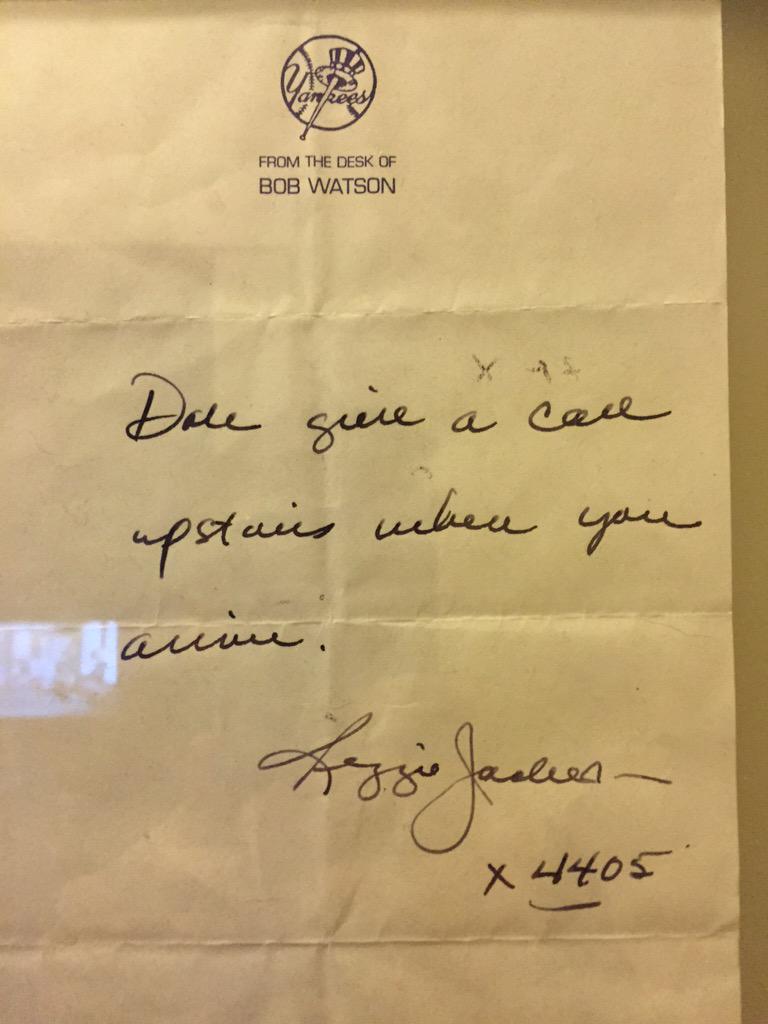 Yankees
FROM THE DESK OF
BOB WATSON
Dale give a call
upstairs when you
arrive.
Reggie Jackson
x 4405